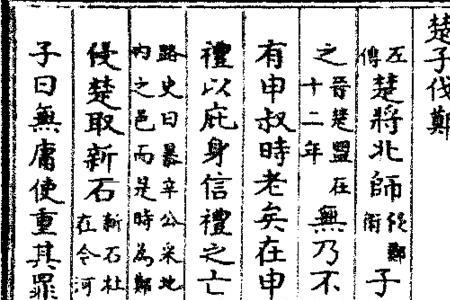 楚子伐鄭
左傳楚將北師侵鄭衛子
之晉楚盟在十二年無乃不
有申叔時老矣在申
禮以庇身信禮之亡
路史曰暴辛公采地
内之邑而是時為鄭
侵楚取新石新石杜在今河
子曰無庸使重其罪